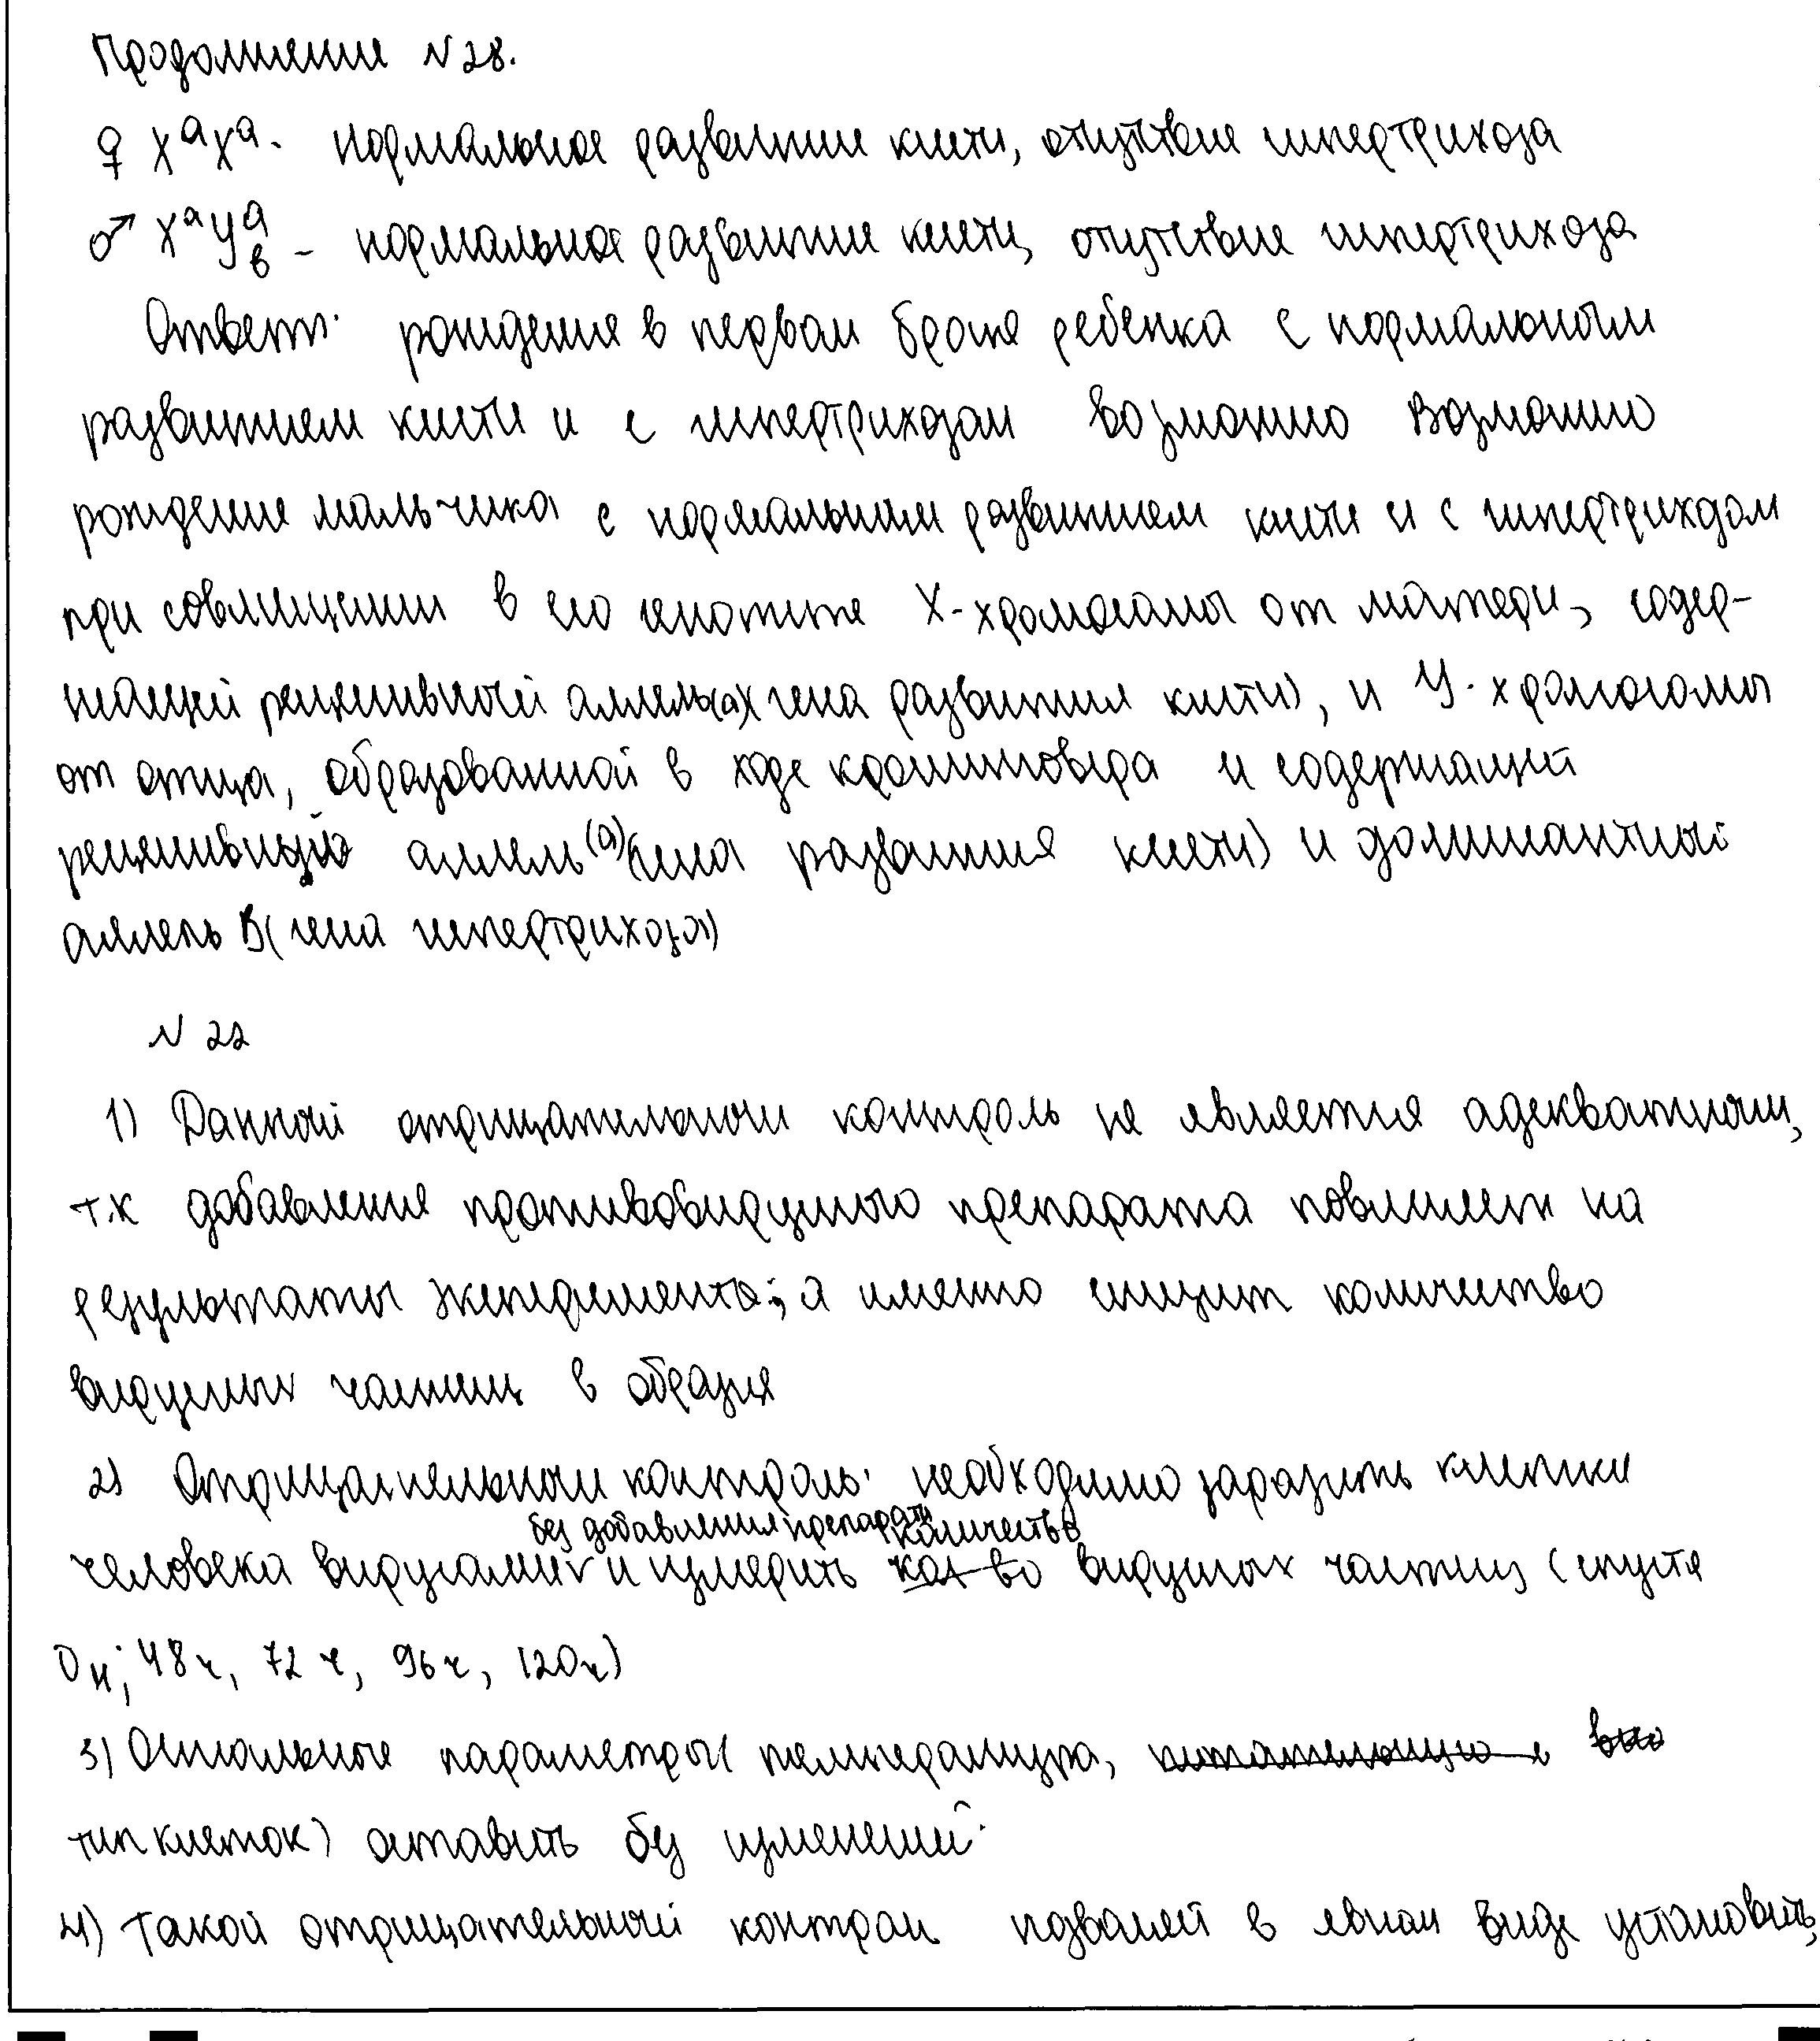 Продолжение №28.
♀ XᵃXᵃ - нормальное развитие кисти, отсутствие гипертрихоза
♂ XᵃYᵃв - нормальное развитие кисти, отсутствие гипертрихоза
Ответ: рождение в первом браке ребенка с нормальным
развитием кисти и с гипертрихозом возможно Возможно
рождение мальчика с нормальным развитием кисти и с гипертрихозом
при совмещении в его генотипе X-хромосомы от матери, содер-
жащей рецессивный аллель(а)(гена развития кисти), и Y-хромосомы
от отца, образованной в ходе кроссинговера и содержащей
рецессивную аллель (а)(гена развития кисти) и доминантный
аллель B(гена гипертрихоза)
№ 22
1) Данный отрицательный контроль не является адекватным,
т.к добавление противовирусного препарата повлияет на
результаты эксперимента; а именно снизит количество
вирусных частиц в образце
2) Отрицательный контроль: необходимо заразить клетки
без добавления препарата количество
человека вирусами и измерить кол-во вирусных частиц (спустя
0ч; 48ч, 72 ч, 96ч, 120ч)
3) Остальные параметры( температура,
тип клеток) оставить без изменений.
4) Такой отрицательный контроль позволяет в явном виде установить,